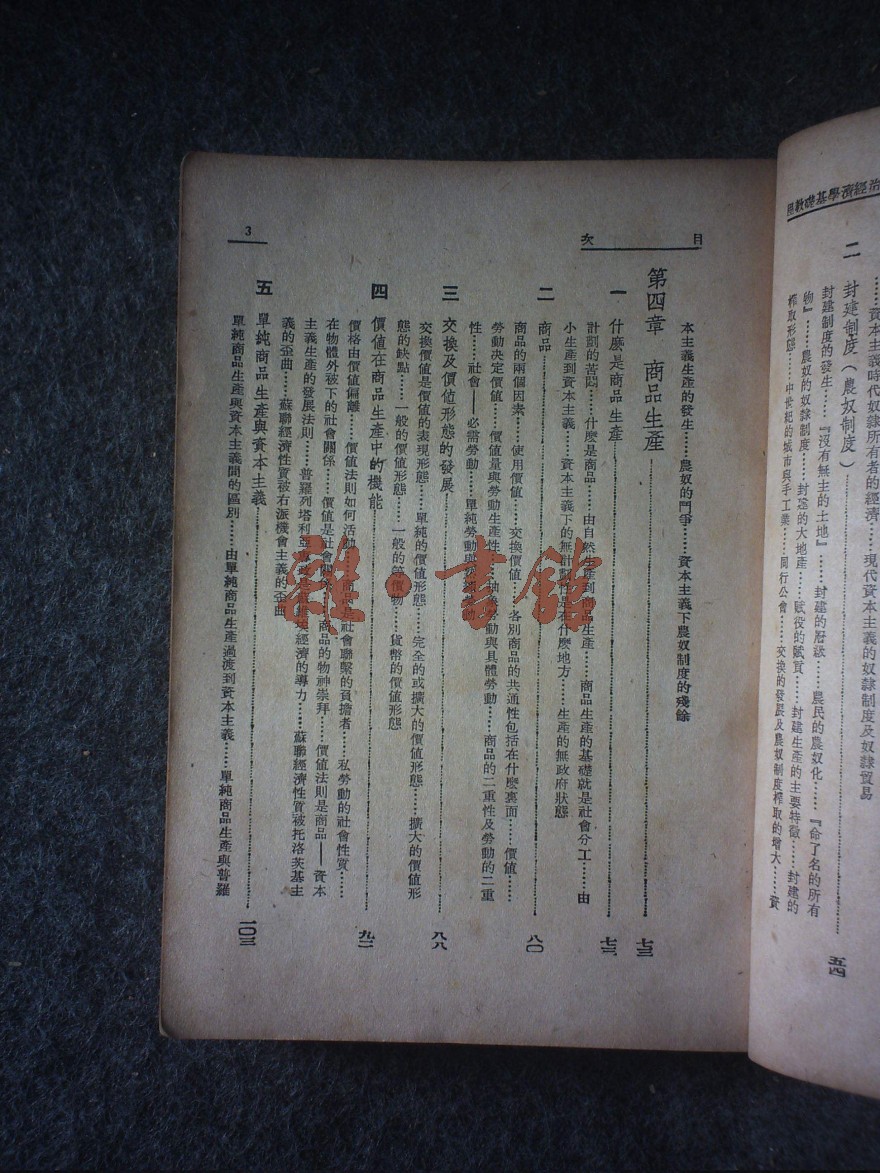 ……資本主義時代奴隸所有者的經濟……現代資本主義的奴隸制度及奴隸貿易
二 封建制度（農奴制度）……五四
封建制度的發生……『沒有無主的土地』……封建的層級……農民的農奴化……『命了名的所有
物』……農奴的奴隸制度……封建的大地產……賦役的賦質……封建生產的主要特徵……封建的
榨取形態……中世紀的城市與手工業……同行公會……交換的發展及農奴制度榨取的增大……資
目 次
3
本主義生產的發生……農奴的鬥爭……資本主義下農奴制度的殘餘
第四章 商品生產……七三
一 什麼是商品生產……七三
計劃的苦悶……什麼是商品……由自然生產到商品生產……商品生產的基礎就是社會分工……由
小生產到資本主義……資本主義下的無計劃性是在什麼地方……生產的無政府狀態
二 商品……八〇
商品的兩個因素……使用價值……交換價值……各別商品的共通性包括在什麼裏面……價值……
勞動決定價值……價值量與勞動生產性……抽象勞動與具體勞動……商品的二重性及勞動的二重
性……社會——必需勞動……單純勞動與
三 交換及價值形態的發展……八八
交換價值是價值的表現形態……單純的價值形態……完全的或擴大的價值形態……擴大的價值形
態的缺點……一般的價值形態……一般的等價物……貨幣的價值形態
四 價值在商品生產中的機能……九二
價格由價值偏離……價值法則如何活動……商品是社會聯繫的負擔者……私勞動的社會性質……
在物體外被下的社會關係……價值是社會關係……商品的物神崇拜……價值法則是商品——資本
主義生產的發展法則……普羅列塔利亞經濟的導力……蘇聯經濟性質被托洛茨基主
義的歪曲……蘇聯經濟性質被右派機會主義的歪曲
五 單純商品生產與資本主義……一〇三
單純商品生產與資本主義間的區別……由單純商品生產過渡到資本主義……單純商品生產與普羅